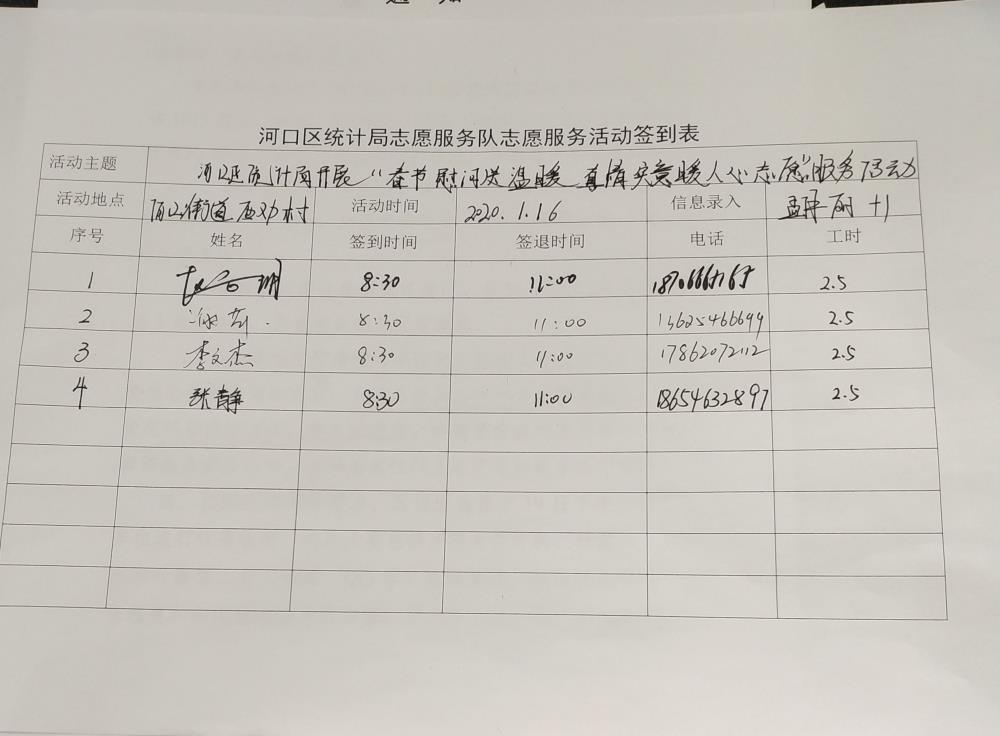 通 知
河口区统计局志愿服务队志愿服务活动签到表
活动主题 河口区统计局开展"春节慰问送温暖 真情实意暖人心"志愿服务活动
活动地点 河口街道 村 活动时间 2020.1.16 信息录入 +1
序号 姓名 签到时间 签退时间 电话 工时
1 8:30 11:00 2.5
2 8:30 11:00 13625466699 2.5
3 李文杰 8:30 11:00 17862072112 2.5
4 张静 8:30 11:00 18654632897 2.5